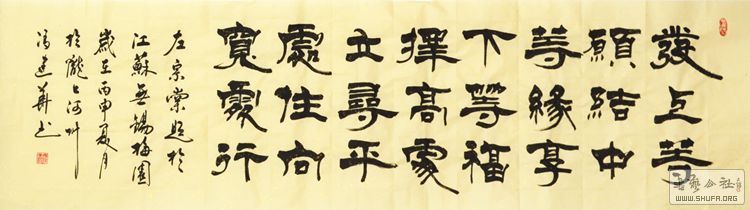 發上等
願結中
等緣享
下等福
擇高處
立尋平
處住向
寬處行
左宗棠題於
江蘇無錫梅園
歲在丙申夏月
於隴上河州
馮建華书
书艺公社
WWW.SHUFA.ORG